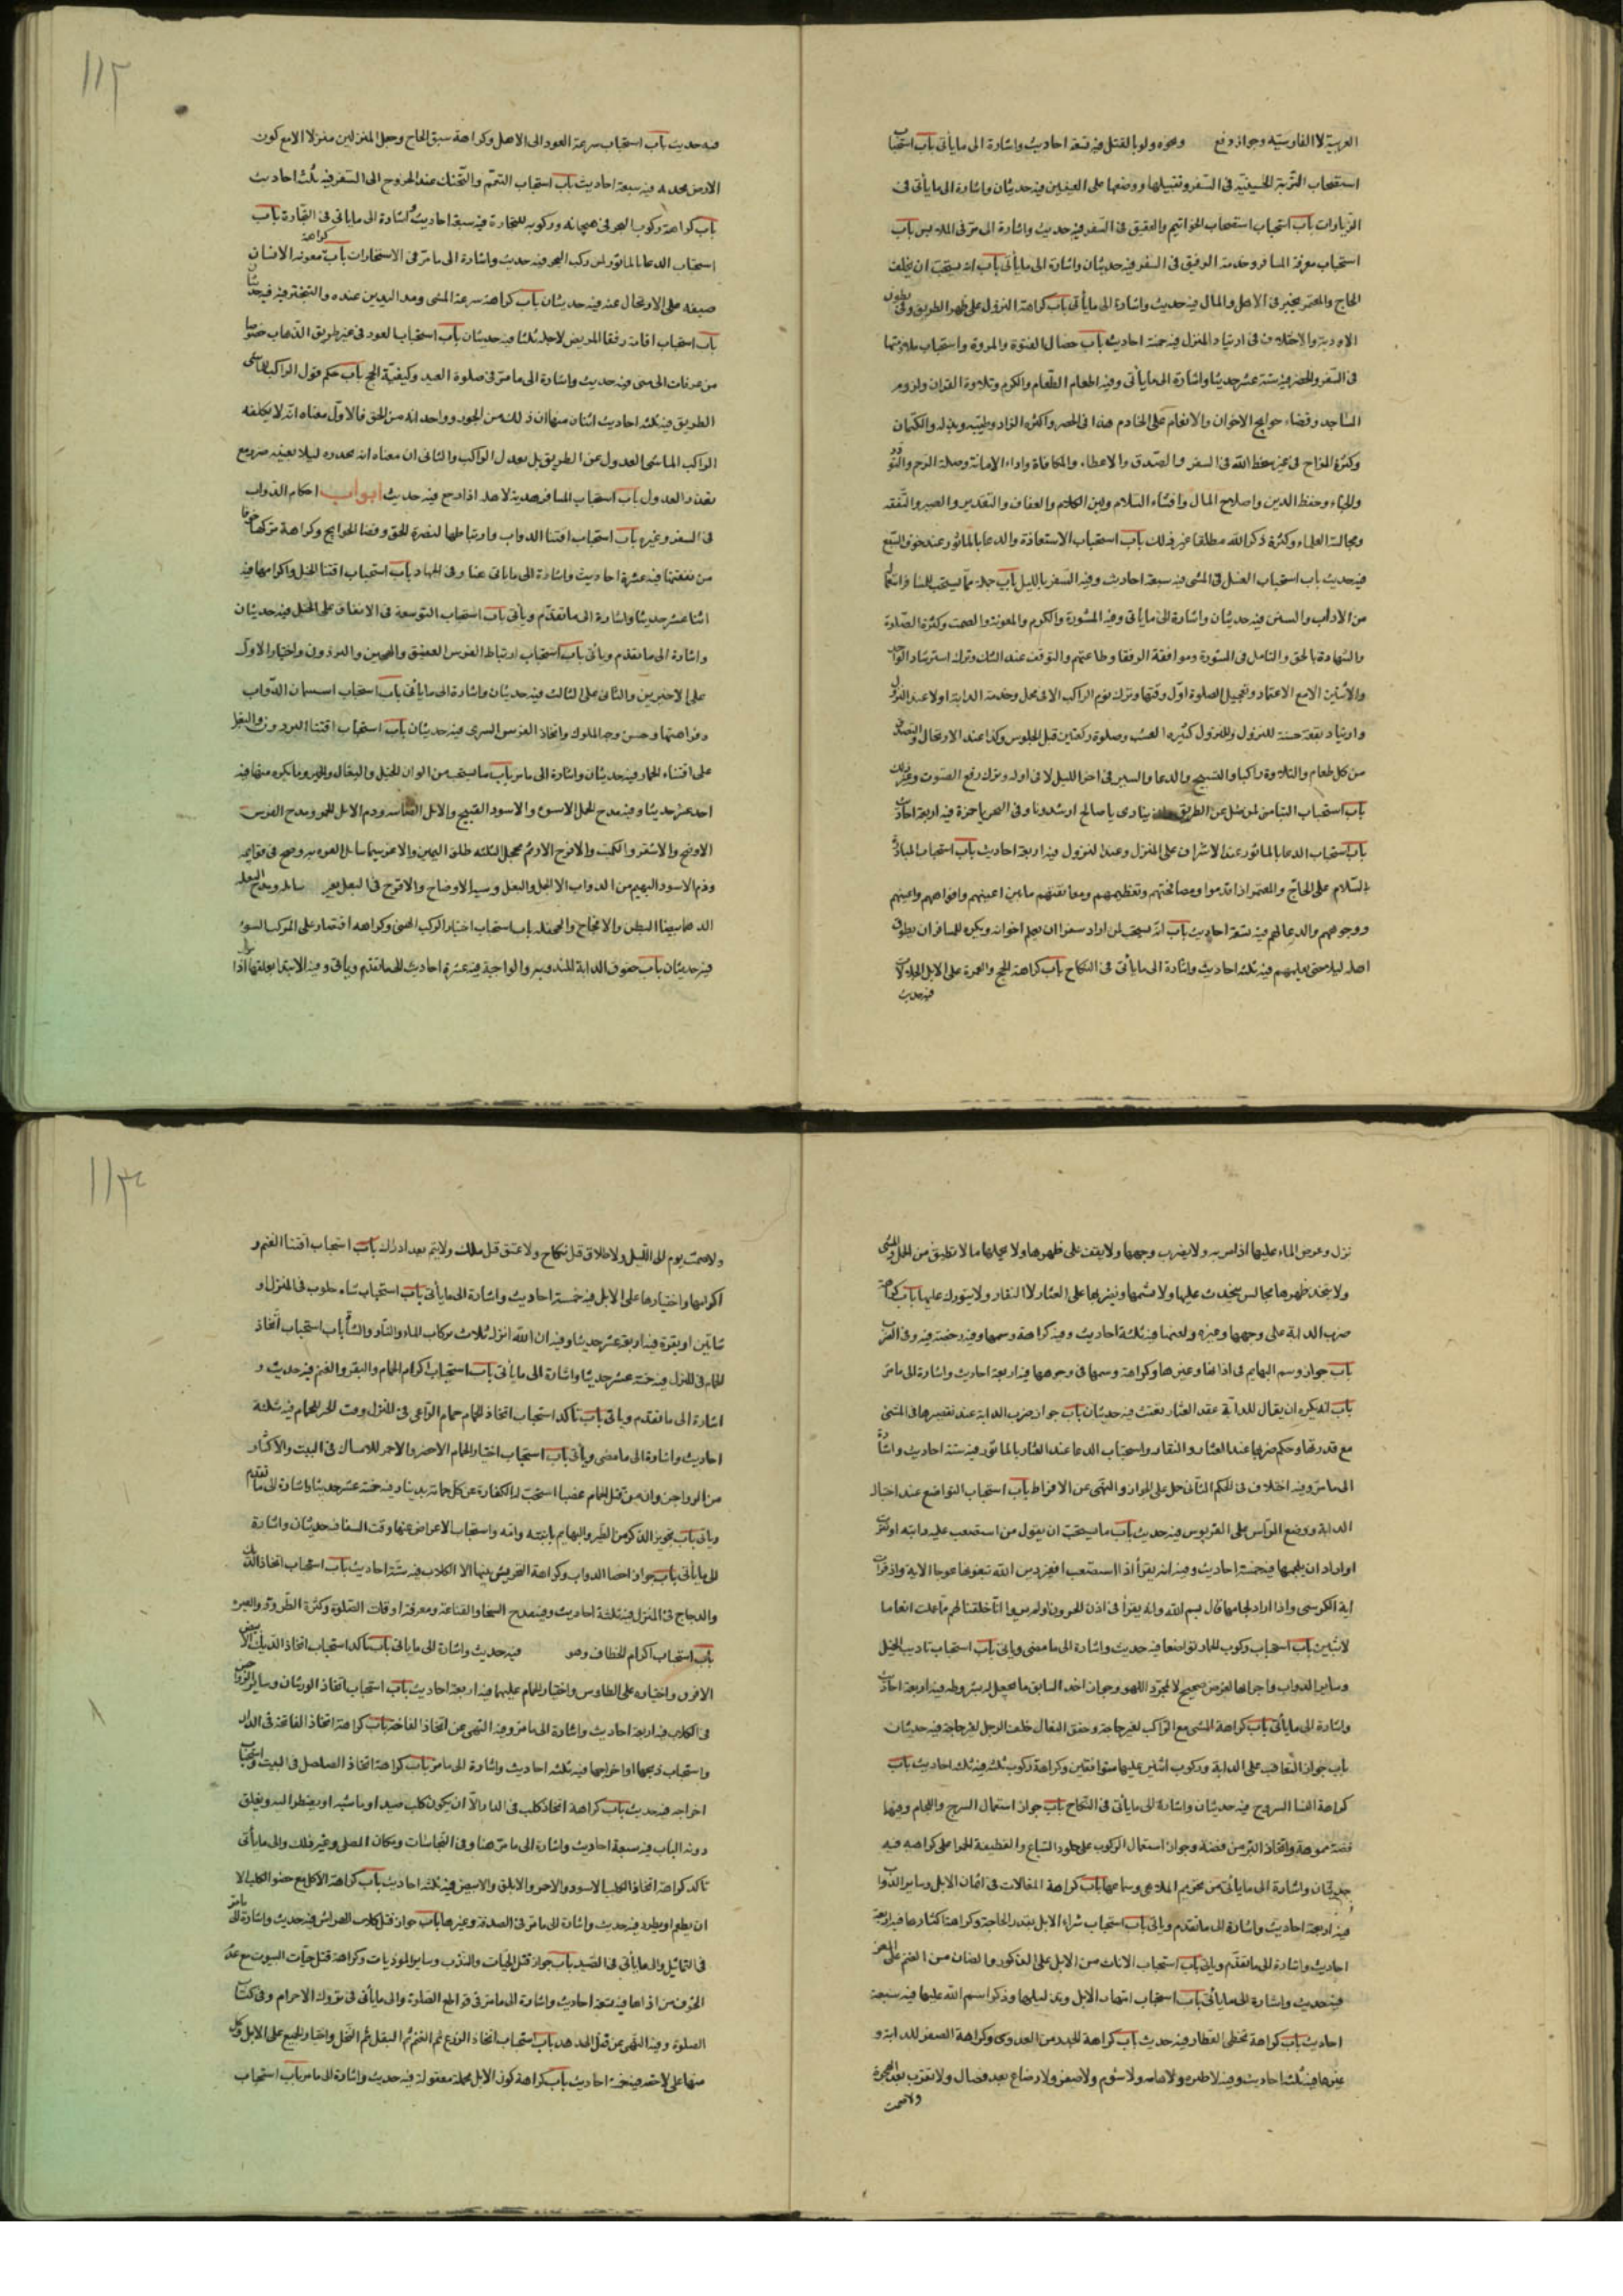 العربية لا الفارسية وجواز دفع ونحوه ولو بالقتل فيه تسعة احاديث واشارة الى ما يأتى باب استحباب
استصحاب التربة الحسينية فى السفر وتقبيلها ووضعها على العينين فيه حديثان واشارة الى ما يأتى فى
الزيارات باب استحباب استصحاب الخواتيم والعقيق فى السفر فيه حديث واشارة الى ما مر فى الملابس باب
استحباب معونة المسافر وخدمة الرفيق فى السفر فيه حديثان واشارة الى ما يأتى باب انه يستحب ان يخلف
الحاج والمعتمر بخير فى الاهل والمال فيه حديث واشارة الى ما يأتى باب كراهة النزول على ظهر الطريق وفى بطون
الاودية والاختلاف فى ارتياد المنزل فيه خمسة احاديث باب خصال الفتوة والمروة واستحباب ملازمتها
فى السفر والحضر فيه ستة عشر حديثا واشارة الى ما يأتى وفيه اطعام الطعام والكرم وتلاوة القران ولزوم
المساجد وقضاء حوايج الاخوان والانعام على الخادم هذا فى الحضر واكثره الزاد وطيبه وبذله والكتمان
وكثرة المزاح فى غير سخط الله فى السفر والصدق والاعطاء والمكافاة واداء الامانة وصلة الرحم والتودد
والحياء وحفظ الدين واصلاح المال وافشاء السلام ولين الكلام والعفاف والتقدير والصبر والتفقه
ومجالسة العلماء وكثرة ذكر الله مطلقا وغير ذلك باب استحباب الاستعاذة والدعا بالماثور عند خوف السبع
فيه حديث باب استحباب النسل فى المشى فيه سبعة احاديث وفيه السفر بالليل باب جملة مما يستحب للمسافر استعماله
من الاداب والسنن فيه حديثان واشارة الى ما يأتى وفيه المشورة والكرم والمعونة والصمت وكثرة الصلوة
والشهادة بالحق والتامل فى المشورة وموافقة الرفقا وطاعتهم والتوقف عند الشك وترك استرشاد الواحد
والاثنين الا مع الاعتماد وتعجيل الصلوة اول وقتها وترك نوم الراكب الا فى محمل وخدمة الدابة اولا عند النزول
وارتياد بقعة حسنة للنزول والنزول كثيرة العشب وصلوة ركعتين قبل الجلوس وكذا عند الارتحال والتصدق
من كل طعام والتلاوة راكبا والتسبيح والدعا والسير فى اخر الليل لا فى اوله وترك رفع الصوت وغير ذلك
باب استحباب التيامن لمن ضل عن الطريق وان ينادى يا صالح ارشدونا وفى البحر يا حمزة فيه اربعة احاديث
باب استحباب الدعا بالماثور عند الاشراف على المنزل وعند النزول فيه اربعة احاديث باب استحباب المبادرة
بالسلام على الحاج والمعتمر اذا قدموا ومصافحتهم وتعظيمهم ومعانقتهم ما بين اعينهم وافواههم واعينهم
ووجوههم والدعا لهم فيه ستة احاديث باب انه يستحب لمن اراد سفرا ان يعلم اخوانه ويكره للمسافر ان يطرق
اهله ليلا حتى يعلمهم فيه ثلثة احاديث واشارة الى ما يأتى فى النكاح باب كراهة الحج والعمرة على الابل الجلالات
فيه حديث
١١٣
فيه حديث باب استحباب سرعة العود الى الاهل وكراهة سبق الحاج وجعل المنزلين منزلا الا مع كون
الارض مجدبة فيه سبعة احاديث باب استحباب التعمم والتحنك عند الخروج الى السفر فيه ثلث احاديث
باب كراهة ركوب البحر فى هيجانه وركوبه للتجارة فيه سبعة احاديث واشارة الى ما ياتى فى التجارة باب
استحباب الدعا بالماثور لمن ركب البحر فيه حديث واشارة الى ما مر فى الاستخارات باب كراهة معونة الانسان
ضيفه على الارتحال عنه فيه حديثان باب كراهة سرعة المشى ومد اليدين عنده والتبختر فيه حديثان
باب استحباب اقامة رفقا المريض لاجله ثلثا فيه حديثان باب استحباب العود فى غير طريق الذهاب خصوصا
من عرفات الى منى فيه حديث واشارة الى ما مر فى صلوة العيد وكيفية الحج باب حكم قول الراكب للماشى
الطريق فيه ثلثة احاديث اثنان منها ان ذلك من الجور وواحد انه من الحق فالاول معناه انه لا يكلفه
الراكب الماشى العدول عن الطريق بل يعدل الراكب والثانى ان معناه انه يحذره ليلا يصيبه ضرر مع
تعذر العدول باب استحباب المسافر هدية لاهله اذا رجع فيه حديث ابواب احكام الدواب
فى السفر وغيره باب استحباب اقتنا الدواب وارتباطها لنصرة الحق وقضا الحوايج وكراهة تركها خوفا
من نفقتها فيه عشرة احاديث واشارة الى ما ياتى هنا وفى الجهاد باب استحباب اقتنا الخيل واكرامها فيه
اثنا عشر حديثا واشارة الى ما تقدم وياتى باب استحباب التوسعة فى الانفاق على الخيل فيه حديثان
واشارة الى ما تقدم وياتى باب استحباب ارتباط الفرس العتيق والهجين والبرذون واختيار الاول
على الاخيرين والثانى على الثالث فيه حديثان واشارة الى ما يأتى باب استحباب استسمان الدواب
وفراهتها وحسن وجه المملوك واتخاذ الفرس السرى فيه حديثان باب استحباب اقتنا البرذون والبغل
على اقتناء الحمار فيه حديثان واشارة الى ما مر باب ما يستحب من الوان الخيل والبغال والحمير وما يكره منها فيه
احد عشر حديثا وفيه مدح الجمل الاسود والاسود القبيح والابل وذم الابل الحمر ومدح الفرس
الاوضح والاشقر والكميت والاقرح الارثم محجل الثلثه طلق اليمين والاغر سيما سايل الغره به وضح فى قوايمه
وذم الاسود البهيم من الدواب الا الجمل والبغل وسية الاوضاح والاقرح فى البغل بغير سايله ومدح البغلة
الدهما بيضا البطن والافجاج والجحفله باب استحباب اختيار المركب الهنى وكراهه اقتصار على المركب السوء
فيه حديثان باب حقوق الدابة المندوبه والواجبة فيه عشرة احاديث الى ما تقدم وياتى وفيه الابتدا بعلفها اذا
نزل وعرض الماء عليها اذا مر به ولا يضرب وجهها ولا يقف على ظهرها ولا يحملها ما لا تطيق من الحمل والمشى
ولا يتخذ ظهرها مجالس يتحدث عليها ولا يشتمها ويضربها على العثار لا النفار ولا يتورك عليها باب كراهة
ضرب الدابة على وجهها وغيره ولعنها فيه ثلثة احاديث وفيه كراهة وسمها وفيه رخصة فيه وفى الضرب
باب جواز وسم البهايم فى اذانها وغيرها وكراهة وسمها فى وجوهها فيه اربعة احاديث واشارة الى ما مر
باب انه يكره ان يقال للدابة عند العثار تعست فيه حديثان باب جواز ضرب الدابة عند تقصيرها فى المشى
مع قدرتها وحكم ضربها عند العثار والنفار واستحباب الدعا عند العثار بالماثور فيه ستة احاديث واشارة
الى ما مر وفيه اختلاف فى الحكم الثانى حمل على الجواز والنهى عن الافراط باب استحباب التواضع عند اختيال
الدابة ووضع الراس على القربوس فيه حديث باب ما يستحب ان يقول من استصعب عليه دابته او نفرت
او اراد ان يلجمها فيه خمسة احاديث وفيه انه يقرأ اذا استصعب افغير دين الله تبغونها عوجا الاية واذ قرات
اية الكرسى واذا اراد لجامها قال بسم الله وانه يقرأ فى اذن الحرون اولم يروا انا خلقنا لهم مما عملت انعاما
لاثنين باب استحباب ركوب الحمار تواضعا فيه حديث واشارة الى ما مضى وياتى باب استحباب تاديب الخيل
وساير الدواب واجرائها لغرض صحيح لا لمجرد اللهو وجواز اخذ السابق ما يجعل له بشروطه فيه اربعة احاديث
واشارة الى ما يأتى باب كراهة المشى مع الراكب لغير حاجة وخفق النعال خلف الرجل لغير حاجة فيه حديثان
باب جواز التعاقب على الدابة وركوب اثنين عليها متوافقين وكراهة ركوب ثلثه فيه ثلث احاديث باب
كراهة النسا السروج فيه حديثان واشارة الى ما يأتى فى النكاح باب جواز استعمال السرج واللجام وفيها
فضة مموهة واتخاذ البرة من فضة وجواز استعمال الركوب على جلود السباع والقطيفة الحمرا على كراهيه فيه
حديثان واشارة الى ما يأتى من تحريم الملاهى وسماعها باب كراهة المغالات فى اثمان الابل وساير الدواب
فيه اربعة احاديث واشارة الى ما تقدم وياتى باب استحباب شراء الابل بقدر الحاجة وكراهة اكثارها فيه اربعة
احاديث واشارة الى ما تقدم وياتى باب استحباب الاناث من الابل على الذكور والضان من الغنم على المعز
فيه حديث واشارة الى ما ياتى باب استحباب امتهان الابل وتذليلها وذكر اسم الله عليها فيه سبعة
احاديث باب كراهة تخطى القطار فيه حديث باب كراهة الحذر من العدوى وكراهة الصفر للدابة و
غيرها فيه ثلثة احاديث وفيه لا طيره ولا هامه ولا شوم ولا صفر ولا رضاع بعد فصال ولا تعرب بعد الهجرة
ولا صمت
١١٤
ولا صمت يوم الى الليل ولا طلاق قبل نكاح ولا عتق قبل ملك ولا يتم بعد ادراك باب استحباب اقتنا الغنم و
اكرامها واختيارها على الابل فيه خمسة احاديث واشارة الى ما يأتى باب استحباب شاة حلوب فى المنزل او
شاتين او بقرة فيه اربعة عشر حديثا وفيه ان الله انزل ثلاث بركات الماء والنار والشاة باب استحباب اتخاذ
الحمام فى المنزل فيه خمسة عشر حديثا واشارة الى ما يأتى باب استحباب اكرام الحمام والبقر والغنم فيه حديث و
اشارة الى ما تقدم وياتى باب تأكد استحباب اتخاذ الحمام حمام الراعى فى المنزل وفت الخبز للحمام فيه ثلثة
احاديث واشارة الى ما مضى ويأتى باب استحباب اختيار الحمام الاخضر والاحمر للامساك فى البيت والاكثار
من الرواجن وان من قتل الحمام غضبا استحب له الكفارة عن كل حمامة بدينار فيه خمسة عشر حديثا واشارة الى ما تقدم
وياتى باب تجويز الذكر من الطير والبهايم بابنته وامه واستحباب الاعراض عنها وقت السفاد فيه حديثان واشارة
الى ما يأتى باب جواز اخصا الدواب وكراهة التحريش بينها الا الكلاب فيه ستة احاديث باب استحباب اتخاذ الديك
والدجاج فى المنزل فيه ثلثة احاديث وفيه مدح السخا والقناعة ومعرفة اوقات الصلوة وكثرة الطروقة والغيره
باب استحباب اكرام الخطاف وهو فيه حديث واشارة الى ما ياتى باب تأكد استحباب اتخاذ الديك الابيض
الافرق واختياره على الطاوس واختيار الحمام عليهما فيه اربعة احاديث باب استحباب اتخاذ الورشان وساير الدواجن
فى الكلاب فيه اربعة احاديث واشارة الى ما مر وفيه النهى عن اتخاذ الفاخته باب كراهة اتخاذ الفاختة فى الدار
واستحباب ذبحها او اخراجها فيه ثلثه احاديث واشارة الى ما مر باب كراهة اتخاذ الصلصل فى البيت واستحباب
اخراجه فيه حديث باب كراهة اتخاذ كلب فى الدار الا ان يكون كلب صيد او ماشيه او يضطر اليه ويغلق
دونه الباب فيه سبعة احاديث واشارة الى ما مر هنا وفى النجاسات ومكان المصلى وغير ذلك والى ما يأتى
تاكد كراهة اتخاذ الكلب الاسود والاحمر والابلق والابيض فيه ثلثة احاديث باب كراهة الاكل مع حضور الكلب الا
ان يطعم او يطرد فيه حديث واشارة الى ما مر فى الصدقة وغيرها باب جواز قتل كلاب الهراش فيه حديث واشارة الى ما مر
فى التماثيل والى ما يأتى فى الصيد باب جواز قتل الحيات والذئب وساير الموذيات وكراهة قتل حيات البيوت مع عدم
الخوف من اذاها فيه تسعة احاديث واشارة الى ما مر فى قواطع الصلوة والى ما يأتى فى تروك الاحرام وفى كتاب
الصلوة وفيه النهى عن قتل الهدهد باب استحباب اتخاذ الزرع ثم الغنم ثم البقر ثم النخل واختيار الجميع على الابل وكل
منها على لاحقه فيه خمسة احاديث باب كراهة كون الابل محملة معقولة فيه حديث واشارة الى ما مر باب استحباب